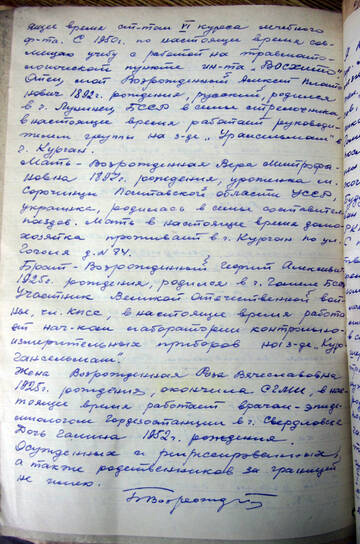 ящее время ст-том VI курса лечебного
ф-та. С 1950г. по настоящее время сов-
мещаю учебу с работой на травмато-
логическом пункте ин-та, ВОСХИТО
Отец мой Возрожденный Алексей Плато
нович 1892г. рождения, русский, родился
в г. Лунинец, БССР в семье стрелочника
в настоящее время работает руководи-
телем группы на з-де „Уралсельмаш" в
г. Курган.
Мать - Возрожденная Вера Митрофа-
новна 1897г. рождения, уроженка м.
Сорочинцы Полтавской области УССР,
украинка, родилась в семье составителя
поездов. Мать в настоящее время домо-
хозяйка проживает в г. Курган по ул.
Гоголя д. N 74.
Брат - Возрожденный Георгий Алексеевич
1925г. рождения, родился в г. Гомель БССР
Участник Великой Отечественной вой-
ны, чл. КПСС, в настоящее время работа
ет нач-ком лаборатории контрольно-
измерительных приборов на з-де „Кур
гансельмаш"
Жена Возрожденная Роза Вячеславовна
1925г. рождения, окончила СГМИ, в нас-
тоящее время работает врачом-эпиде-
миологом Горсэсстанции в г. Свердловске
Дочь Галина 1952г. рождения.
Осужденных и репрессированных,
а также родственников за границей
не имею.